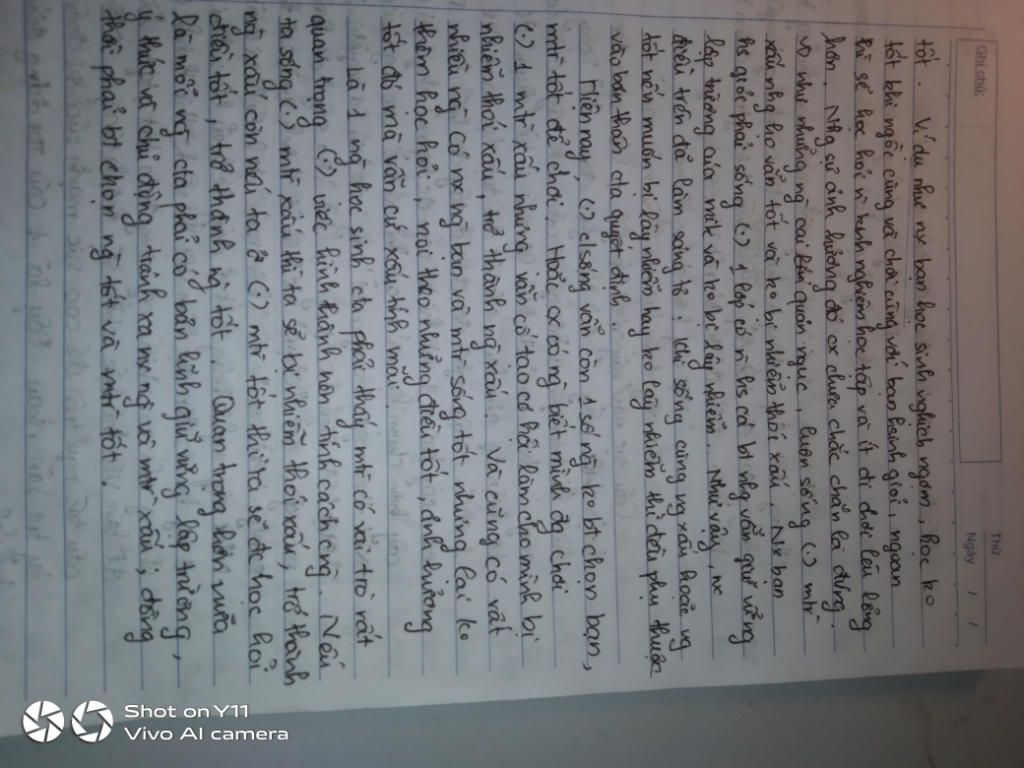 Ghi chú:
Thứ
Ngày / /
tốt. Ví dụ như nx bạn học sinh nghịch ngợm, học ko
tốt khi ngồi cùng và chơi cùng với bạn hành giỏi, ngoan
thì sẽ học hỏi n kinh nghiệm học tập và ít đi chơi lêu lổng
hơn. Nhg sự ảnh hưởng đó cx chưa chắc chắn là đúng.
Vd như những ng cai quản ngục, luôn sống (.) mtr
xấu nhg họ vẫn tốt và ko bị nhiễm thói xấu. Nx bạn
hs giỏi phải sống (.) 1 lớp có n hs cá bt nhg vẫn giữ vững
lập trường của mk và ko bị lây nhiễm. Như vậy, nx
điều trên đã làm sáng tỏ. Khi sống cùng ng xấu hoặc ng
tốt nếu muốn bị lây nhiễm hay ko lây nhiễm thì đều phụ thuộc
vào bản thân ta quyết định.
Hiện nay, (.) c/sống vẫn còn 1 số ng ko bt chọn bạn,
mtr tốt để chơi. Hoặc cx có ng biết mình đg chơi
(.) 1 mtr xấu nhưng vẫn cố tạo cơ hội làm cho mình bị
nhiễm thói xấu, trở thành ng xấu. Và cũng có rất
nhiều ng có nx ng bạn và mtr sống tốt nhưng lại ko
thèm học hỏi, noi theo những điều tốt, định hướng
tốt đó mà vẫn cứ xấu tính mãi.
Là 1 ng học sinh cta phải thấy mtr có vai trò rất
quan trọng (.) việc hình thành nên tính cách cng. Nếu
ta sống (.) mtr xấu thì ta sẽ bị nhiễm thói xấu, trở thành
ng xấu còn nếu ta ở (.) mtr tốt thì ta sẽ đc học hỏi
điều tốt, trở thành ng tốt. Quan trọng hơn nữa
là mỗi ng cta phải có bản lĩnh giữ vững lập trường,
ý thức và chủ động tránh xa nx ng và mtr xấu, đồng
thời phải bt chọn ng tốt và mtr tốt.
Shot on Y11
Vivo AI camera